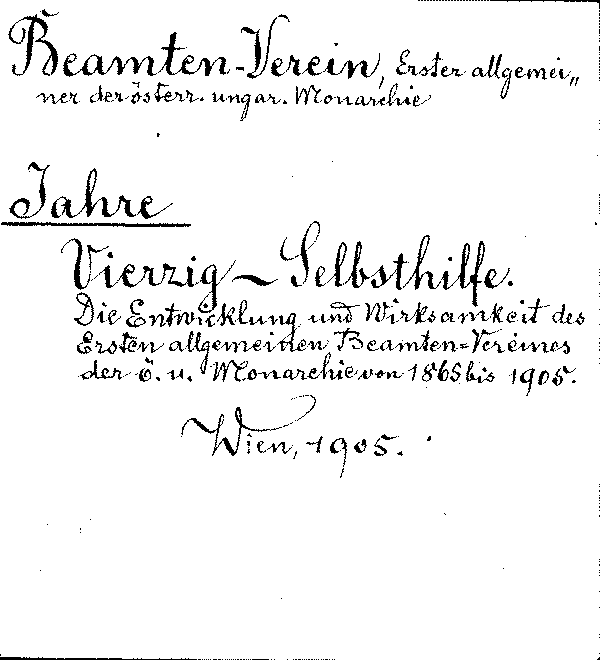 Beamten-Verein, Erster allgemei„
ner der österr. ungar. Monarchie
Jahre
Vierzig ~ Selbsthilfe.
Die Entwicklung und Wirksamkeit des
Ersten allgemeinen Beamten-Vereines
der ö. u. Monarchie von 1865 bis 1905.
Wien, 1905.